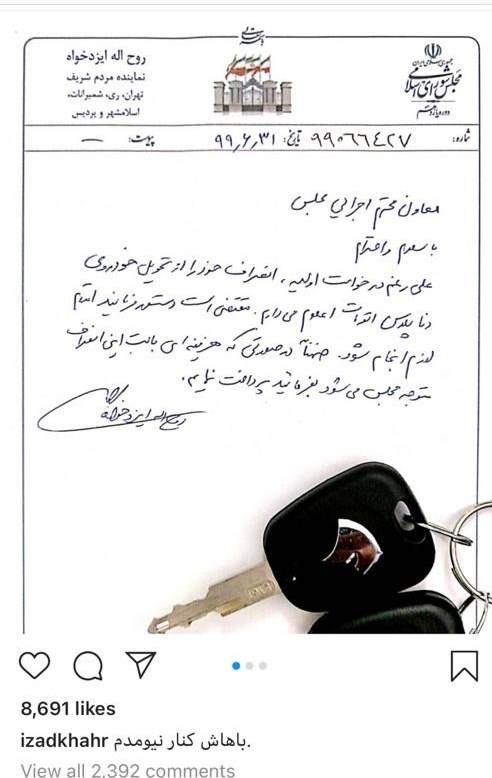 روح اله ایزدخواه
نماینده مردم شریف
تهران، ری، شمیرانات،
اسلامشهر و پردیس
جمهوری اسلامی ایران
مجلس شورای اسلامی
دوره یازدهم
شماره: ۹۹۰۶۶۴۲۷ تاریخ: ۹۹٫۶٫۳۱ پیوست: —
معاون محترم اجرایی مجلس
با سلام و احترام
علی رغم درخواست اولیه، انصراف خود را از تحویل خودروی
دنا پلاس اتومات اعلام می دارم. مقتضی است دستور فرمایید اقدام
لازم انجام شود. ضمناً در صورتی که هزینه ای بابت این انصراف
متوجه مجلس می شود بفرمائید پرداخت نمایم.
روح اله ایزدخواه
8,691 likes
izadkhahr باهاش کنار نیومدم.
View all 2,392 comments